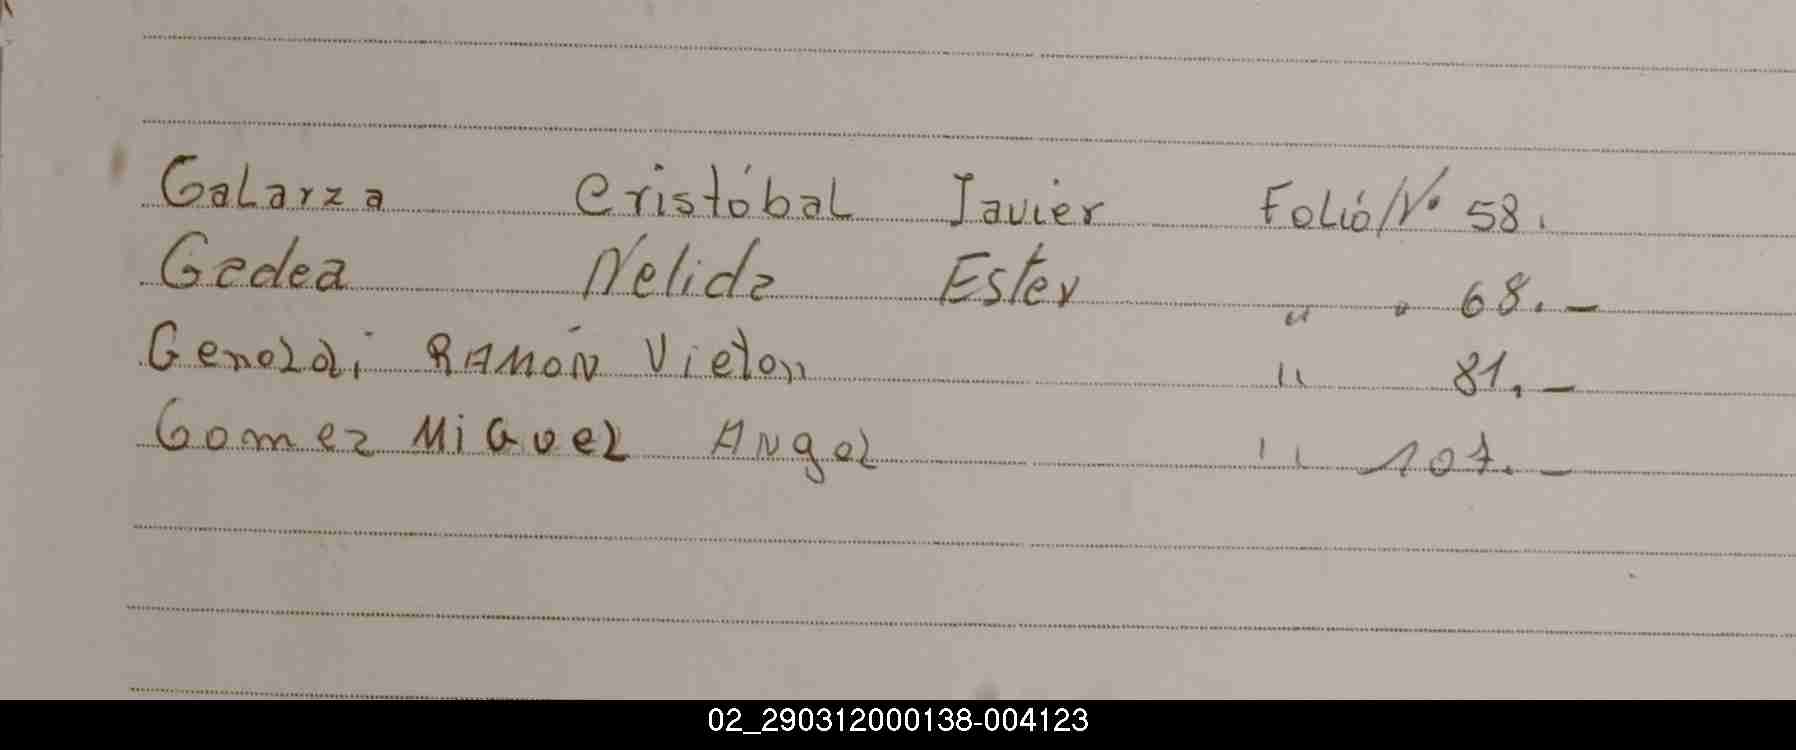 Galarza Cristóbal Javier Folió Nº 58.
Gedea Nelida Ester " " 68.—
RAMÓN Victor " 81.—
Gomez MiGuel ANgel " 107.—
02_290312000138-004123